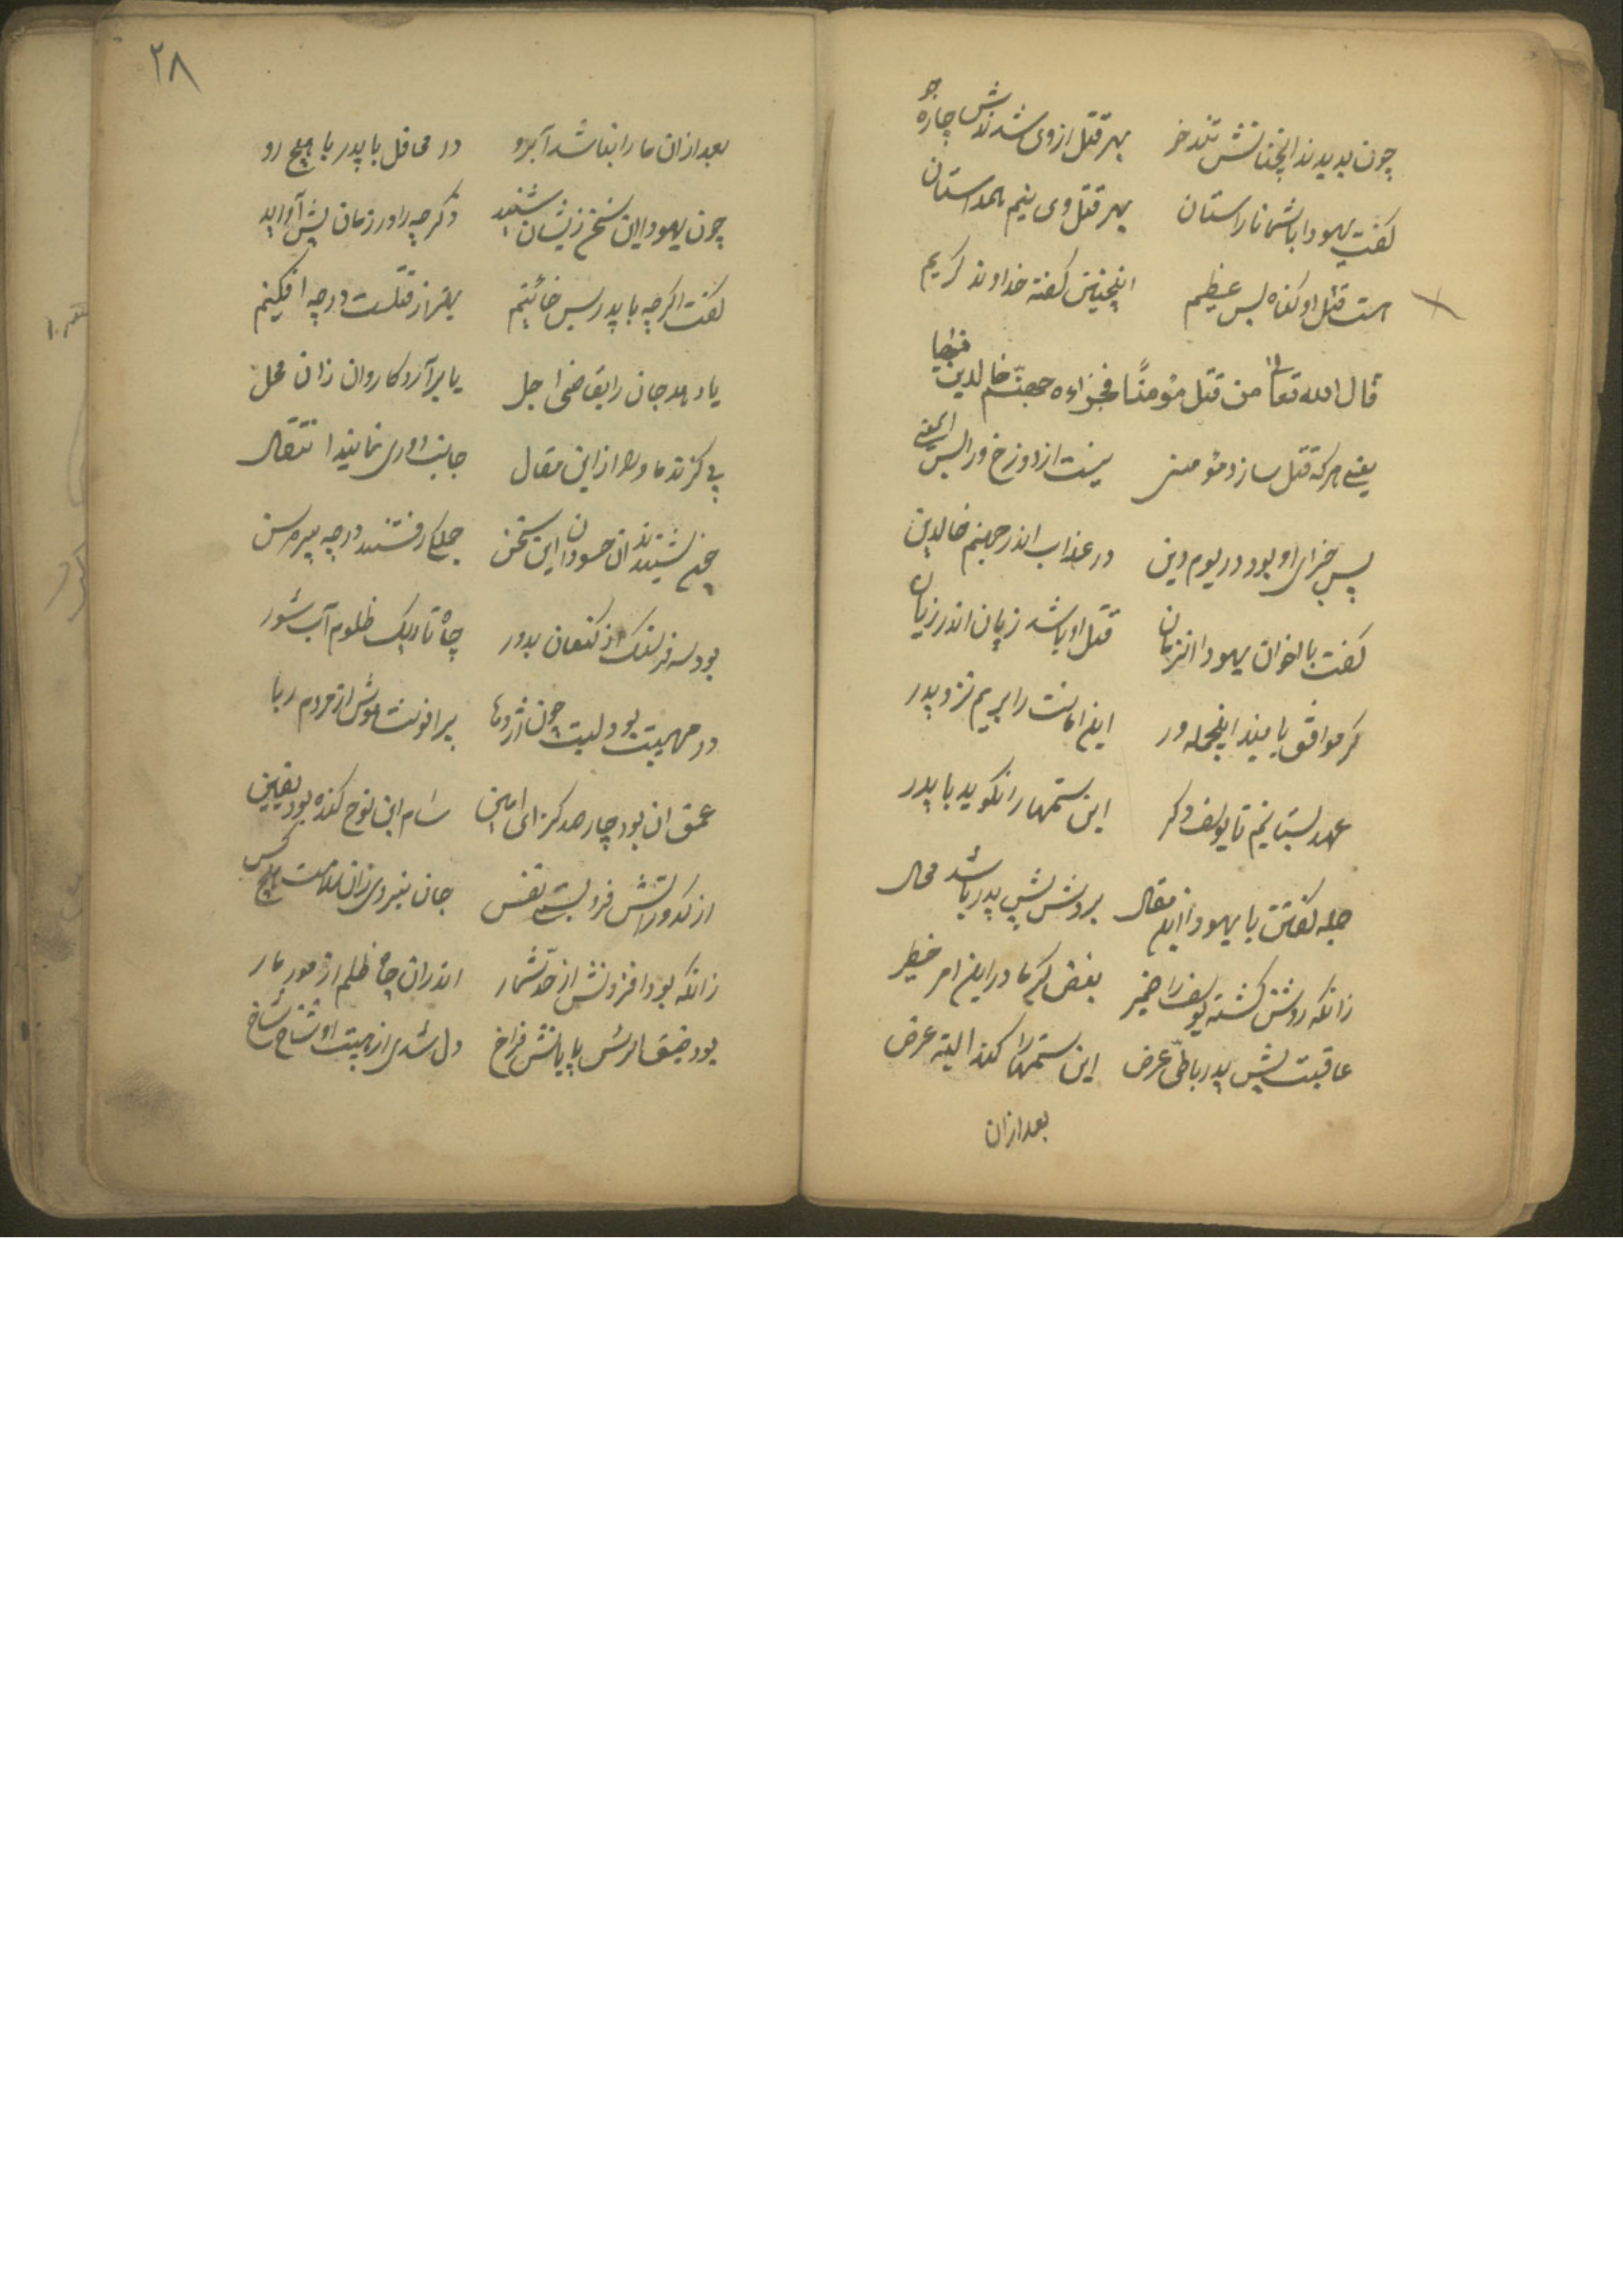 چون بدیدند انچنانش تندخو بهر قتل از وی شدندش چاره جو
گفت یهودا با شما ناراستان بهر قتل وی نیم همداستان
هست قتل او گناه بس عظیم اینچنین گفته خداوند کریم
قال الله تعا من قتل مؤمنًا فجزاءه جهنّم خالدین فیها
یعنی هرکه قتل سازد مؤمنی نیست از دوزخ ورا ایمنی
پس جزای او بود در یوم دین در عذاب اندر جهنم خالدین
گفت با اخوان یهودا انزمان قتل او باشد زیان اندر زیان
گر موافق یا میند اینجمله ور این امانت را بریم نزد پدر
عهد بستانیم تا یوسف دگر این ستمها را نگوید با پدر
جمله گفتند با یهودا این مقال بردنش پیش پدر باشد محال
زانکه روشن گشته یوسف را ضمیر بغض گرما در این امر خطیر
عاقبت پیش پدر باطی عرض این ستمها را کند البته عرض
بعد ازان
۲۸
بعد ازان ما را بناشد آبرو در محافل با پدر با هیچ رو
چون یهودا این سخن زیشان شنید ذکر چه را در زمان پیش آوابد
گفت اگرچه با پدر بس خائنیم بهتر از قتلست در چه افکنیم
یا دهد جان را بقاضی اجل یا برآرد کاروان زان محل
بی گزند ما و را از این مقال جانب داوری نمایند انتقال
چون شنیدند ان حسودان این سخن جملگی رفتند در چه پیرهن
بود سه فرسنگ از کنعان بدور چاه تاریک ظلوم آب شور
در مهیبت بود لیت چون اژدها بر افونت هوش از مردم ربا
عمق ان بود چارصد گز ای امین سام ابن نوح کنده بود یقین
از کدوراتش فرو بست نفس جان نبردی زان سلامت هیچ کس
زانکه بود افزونش از حدّ شمار اندران چاه ظلم از مور مار
بود ضیق سرش پایانش فراخ دل شدی از هیبت او شاخ شاخ